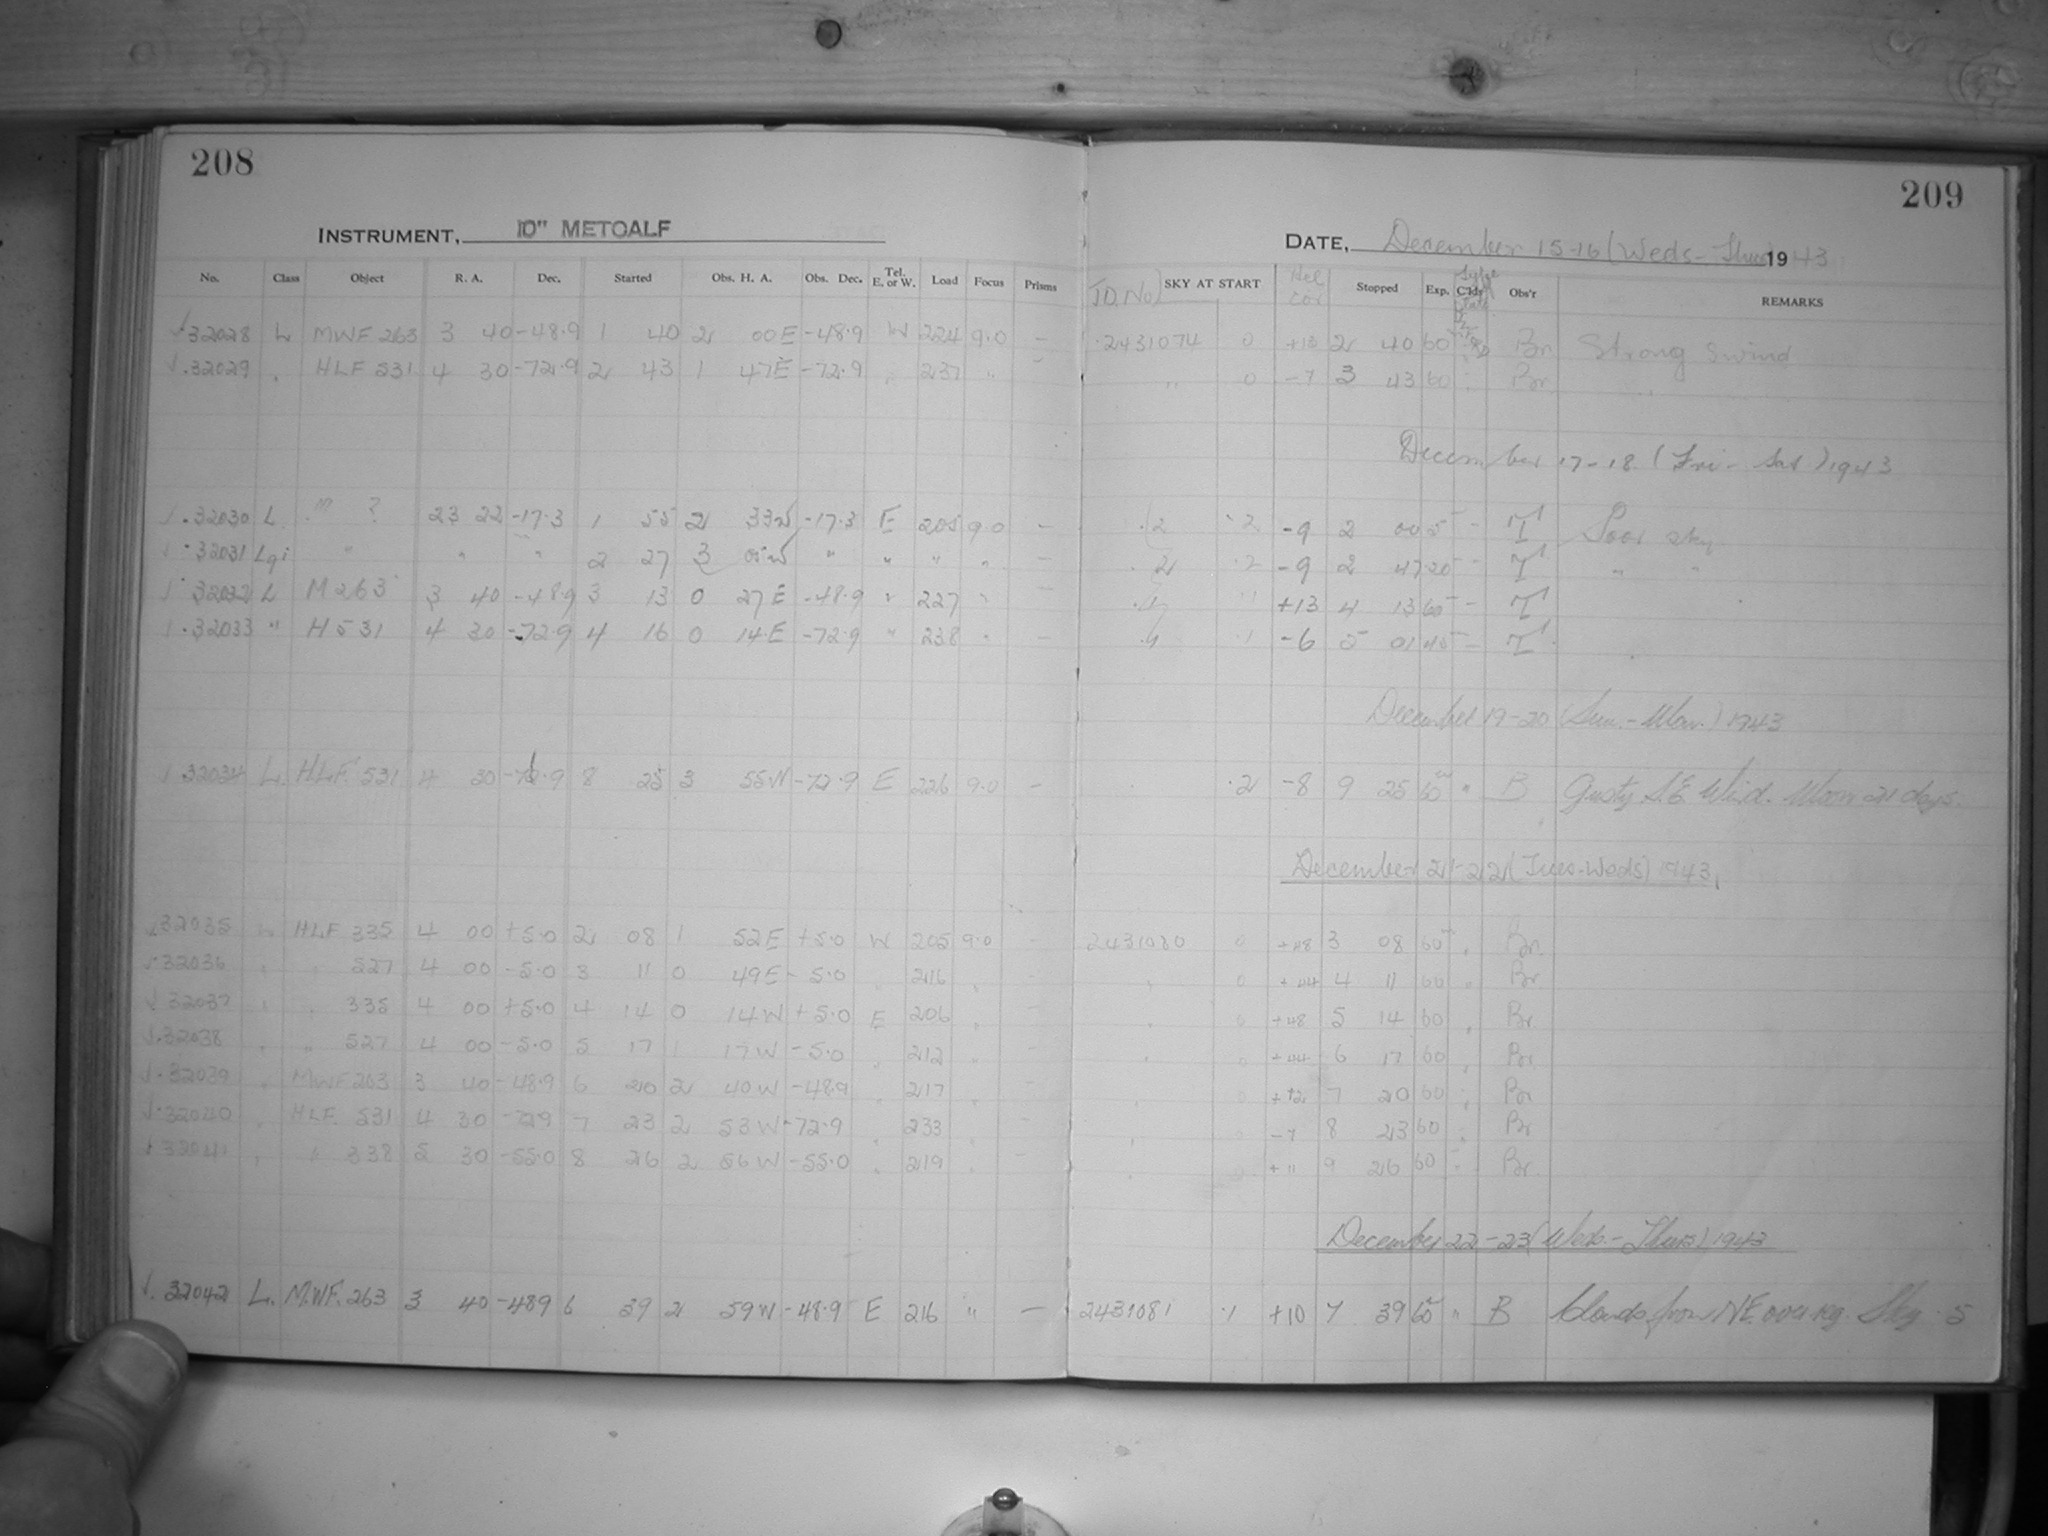 208
209
INSTRUMENT, 10" METCALF
DATE, December 15-16 (Weds-Thurs) 1943
No. Class Object R. A. Dec. Started Obs. H. A. Obs. Dec. Tel. E. or W. Load Focus Prisms J.D. No. SKY AT START Stopped Exp. Obs'r REMARKS
32028 L MWF 263 3 40 -48.9 1 40 2 00E -48.9 W 224 9.0 - 2431074 0 +13 2 40 60 Br Strong S wind
32029 " HLF 531 4 30 -72.9 2 43 1 47E -72.9 " 237 " - " 0 -7 3 43 60 Br "
December 17-18 (Fri - Sat) 1943
32030 L. ? 23 22 -17.3 1 55 2 33W -17.3 E 205 9.0 - .2 .2 -9 2 00 5 - T Poor sky
32031 Lgi " " " 2 27 3 05W " " " " - .2 .2 -9 2 47 20 - T " "
32032 L M 263 3 40 -48.9 3 13 0 27E -48.9 " 227 " - .1 .1 +13 4 13 60 - T
32033 " H 531 4 30 -72.9 4 16 0 14E -72.9 " 238 " - .1 -6 5 01 45 - T
December 19-20 (Sun.-Mon.) 1943
32034 L. HLF. 531 4 30 -72.9 8 25 3 55.W -72.9 E 226 9.0 - .2 -8 9 25 60 " B Gusty S.E. Wind. Moon 21 days.
December 21-22 (Tues-Weds) 1943.
32035 L HLF 335 4 00 +5.0 2 08 1 52E +5.0 W 205 9.0 - 2431080 0 +48 3 08 60 " Br.
32036 " " 527 4 00 -5.0 3 11 0 49E -5.0 " 216 " - " 0 +44 4 11 60 " Br
32037 " " 335 4 00 +5.0 4 14 0 14W +5.0 E 206 " - " 0 +48 5 14 60 " Br
32038 " " 527 4 00 -5.0 5 17 1 17W -5.0 " 212 " - " 0 +44 6 17 60 " Br
32039 " MWF 263 3 40 -48.9 6 20 2 40W -48.9 " 217 " - " 0 +12 7 20 60 " Br
32040 " HLF. 531 4 30 -72.9 7 23 2 53W -72.9 " 233 " - " 0 -7 8 23 60 " Br
32041 " " 338 5 30 -55.0 8 26 2 56W -55.0 " 219 " - 0 +11 9 26 60 " Br.
December 22-23 (Weds.-Thurs) 1943
32042 L. M.WF. 263 3 40 -48.9 6 39 2 59W -48.9 E 216 " - 2431081 .1 +10 7 39 60 " B Clouds from NE over rg. Sky .5